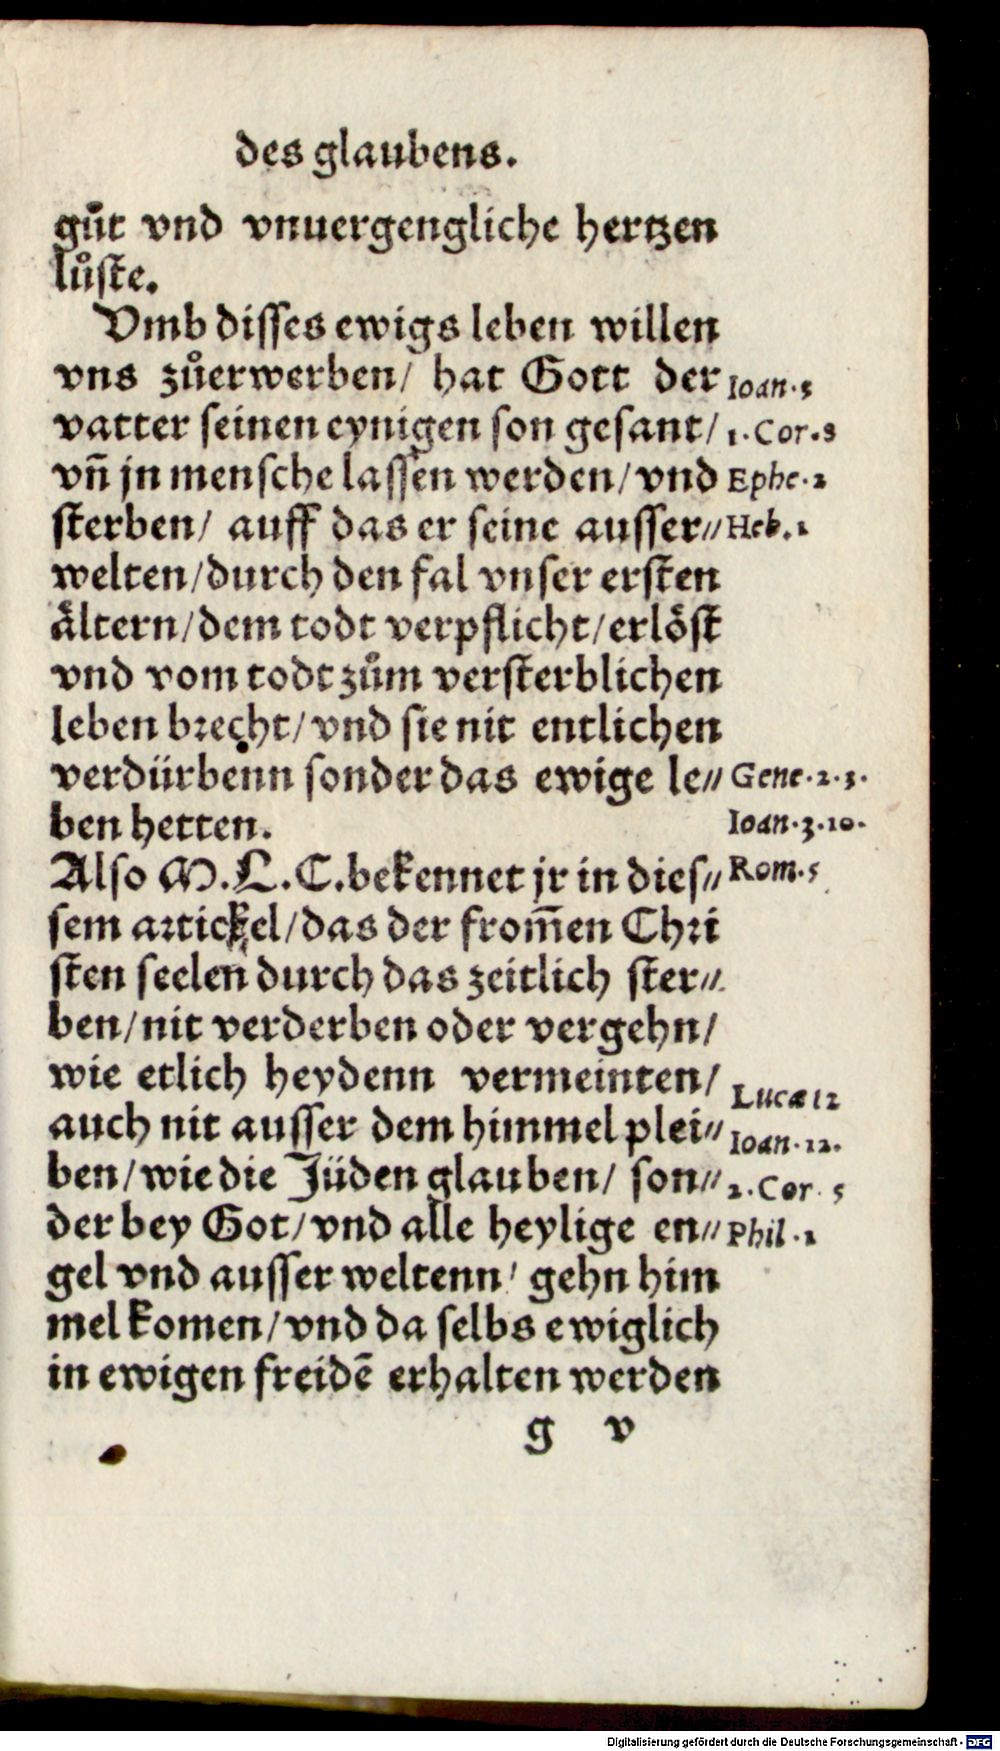 des glaubens.
gůt vnd vnuergengliche hertzen
lůste.
Vmb disses ewigs leben willen
vns zůerwerben/ hat Gott der
Ioan. 5
vatter seinen eynigen son gesant/
1. Cor. 8
vñ jn mensche lassen werden/vnd
Ephe. 2
sterben/ auff das er seine ausser⸗
Heb. 2
welten/durch den fal vnser ersten
ältern/dem todt verpflicht/erlöst
vnd vom todt zům versterblichen
leben brecht/vnd sie nit entlichen
verdürbenn sonder das ewige le⸗
Gene. 2. 3.
ben hetten.
Ioan. 3. 10.
Also M. L. C. bekennet jr in dies⸗
Rom. 5
sem artickel/das der from̃en Chri
sten seelen durch das zeitlich ster⸗
ben/nit verderben oder vergehn/
wie etlich heydenn vermeinten/
Lucæ 12
auch nit ausser dem himmel plei⸗
Ioan. 12.
ben/wie die Jüden glauben/ son⸗
2. Cor. 5
der bey Got/vnd alle heylige en⸗
Phil. 1
gel vnd ausser weltenn/ gehn him
mel komen/vnd da selbs ewiglich
in ewigen freidē erhalten werden
g v
Digitalisierung gefördert durch die Deutsche Forschungsgemeinschaft - DFG